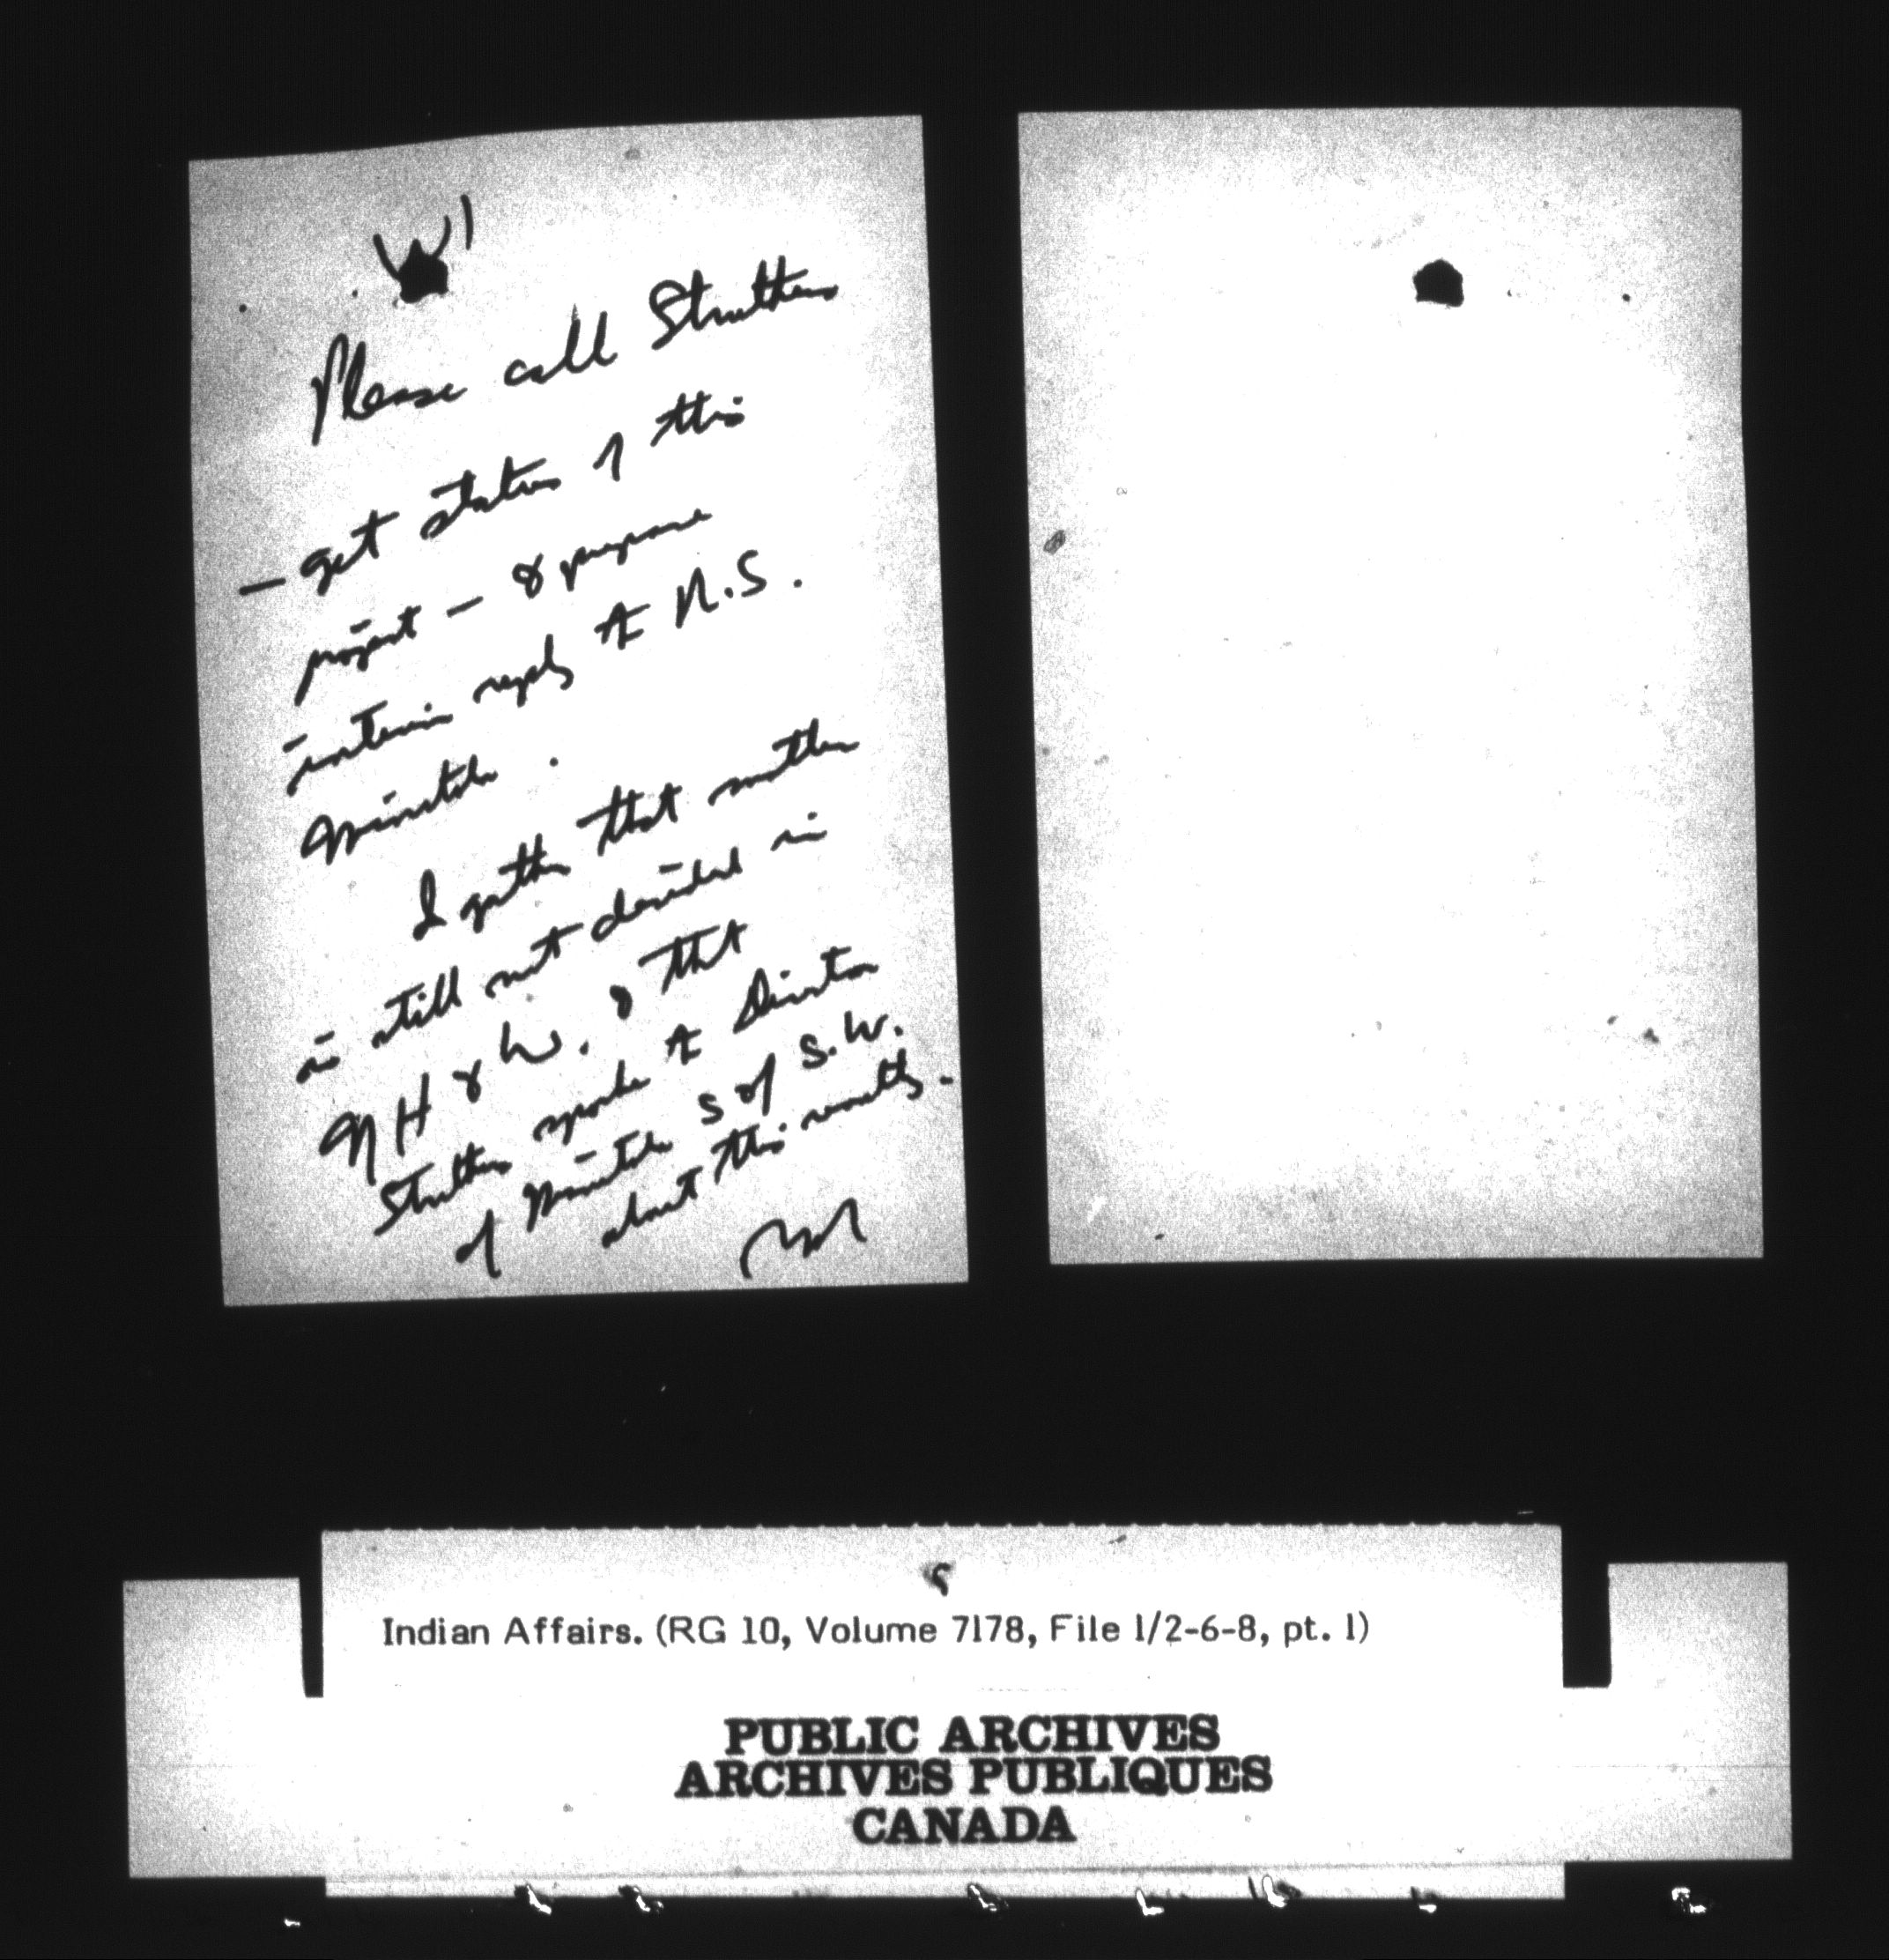 W1
Please call Struthers
— get status of this
project — & prepare
interim reply to N.S.
Minister.
I gather that matter
is still not decided in
NH & W. & that
Struthers spoke to Director
of Minister's of S.W.
about this recently.
Indian Affairs. (RG 10, Volume 7178, File 1/2-6-8, pt. 1)
PUBLIC ARCHIVES
ARCHIVES PUBLIQUES
CANADA